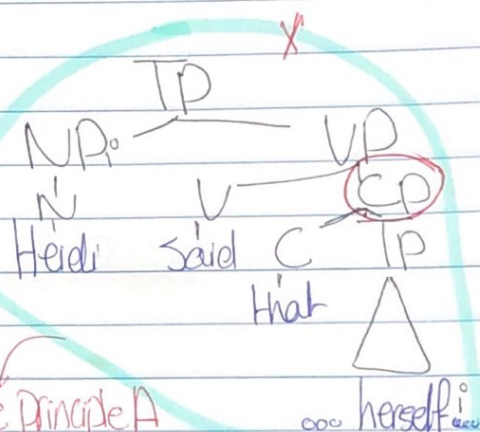 X
TP
NPi VP
N V CP
Heidi said C TP
that
Principle A ... herself i ...